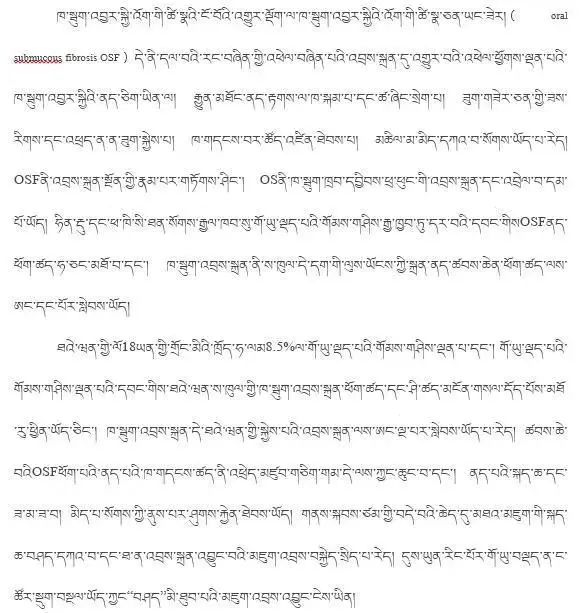 ཁ་སྦུག་འབྱར་སྐྱི་འོག་གི་ཚི་སྣའི་ངོ་བོའི་འགྱུར་ལྡོག་ལ་ཁ་སྦུག་འབྱར་སྐྱིའི་འོག་གི་ཚི་སྣ་ཅན་ཡང་ཟེར། ( oral
submucous fibrosis OSF ) དེ་ནི་དལ་བའི་རང་བཞིན་གྱི་འཕེལ་བཞིན་པའི་འབྲས་སྐྲན་དུ་འགྱུར་བའི་འཕེལ་ཕྱོགས་ལྡན་པའི་
ཁ་སྦུག་འབྱར་སྐྱིའི་ནད་ཅིག་ཡིན་ལ། རྒྱུན་མཐོང་ནད་རྟགས་ལ་ཁ་སྐམ་པ་དང་ཚ་ཞིང་སྲེག་པ། ཟུག་གཟེར་ཅན་གྱི་ཟས་
རིགས་དང་འཕྲད་ན་ན་ཟུག་སྐྱེས་པ། ཁ་གདངས་བར་ཚོད་འཛིན་ཐེབས་པ། མཆིལ་མ་མིད་དཀའ་བ་སོགས་ཡོད་པ་རེད།
OSFནི་འབྲས་སྐྲན་སྔོན་གྱི་རྣམ་པར་གཏོགས་ཤིང་། OSནི་ཁ་སྦུག་ཁྲབ་དབྱིབས་ཕྲ་ཕུང་གི་འབྲས་སྐྲན་དང་འབྲེལ་བ་དམ་
པོ་ཡོད། ཧིན་རྡུ་དང་ཕ་ཁི་སི་ཐན་སོགས་རྒྱལ་ཁབ་སུ་གོ་ཡུ་ལྡད་པའི་གོམས་གཤིས་རྒྱ་ཁྱབ་ཏུ་དར་བའི་དབང་གིསOSFནད་
ཕོག་ཚད་ཧ་ཅང་མཐོ་བ་དང་། ཁ་སྦུག་འབྲས་སྐྲན་ནི་ས་ཁུལ་དེ་དག་གི་ལུས་ཡོངས་ཀྱི་སྐྲན་ནད་ཚབས་ཆེན་ཕོག་ཚད་ལས་
ཨང་དང་པོར་སླེབས་ཡོད།
ཐའེ་ཝན་གྱི་ལོ18ཡན་གྱི་གྲོང་མིའི་ཁྲོད་ཧ་ལམ8.5%ལ་གོ་ཡུ་ལྡད་པའི་གོམས་གཤིས་ལྡན་པ་དང་། གོ་ཡུ་ལྡད་པའི་
གོམས་གཤིས་ལྡན་པའི་དབང་གིས་ཐའེ་ཝན་ས་ཁུལ་གྱི་ཁ་སྦུག་འབྲས་སྐྲན་ཕོག་ཚད་དང་ཤི་ཚད་མངོན་གསལ་དོད་པོས་མཐོ
་རུ་ཕྱིན་ཡོད་ཅིང་། ཁ་སྦུག་འབྲས་སྐྲན་དེ་ཐའེ་ཝན་གྱི་སྐྱེས་པའི་འབྲས་སྐྲན་ལས་ཨང་ལྔ་པར་སླེབས་ཡོད་པ་རེད། ཚབས་ཆེ་
བའིOSFཕོག་པའི་ནད་པའི་ཁ་གདངས་ཚད་ནི་འཕྲེད་མཛུབ་གཅིག་གམ་དེ་ལས་ཀྱང་ཆུང་བ་དང་། ནད་པའི་སྐད་ཆ་དང་
ཟ་མ་ཟ་བ། མིད་པ་སོགས་ཀྱི་ནུས་པར་ཤུགས་རྐྱེན་ཐེབས་ཡོད། གནས་སྐབས་ཙམ་གྱི་བདེ་བའི་ཆེད་དུ་མཐའ་མཇུག་གི་སྐད་
ཆ་བཤད་དཀའ་བ་དང་ཐ་ན་འབྲས་སྐྲན་འབྱུང་བའི་མཇུག་འབྲས་བསྐྱེད་སྲིད་པ་རེད། དུས་ཡུན་རིང་པོར་གོ་ཡུ་བལྡད་ན་ང་
ཚོར་སྡུག་བསྔལ་ཡོད་ཀྱང་“བཤད”མི་ཐུབ་པའི་མཇུག་འབྲས་འབྱུང་ངེས་ཡིན།